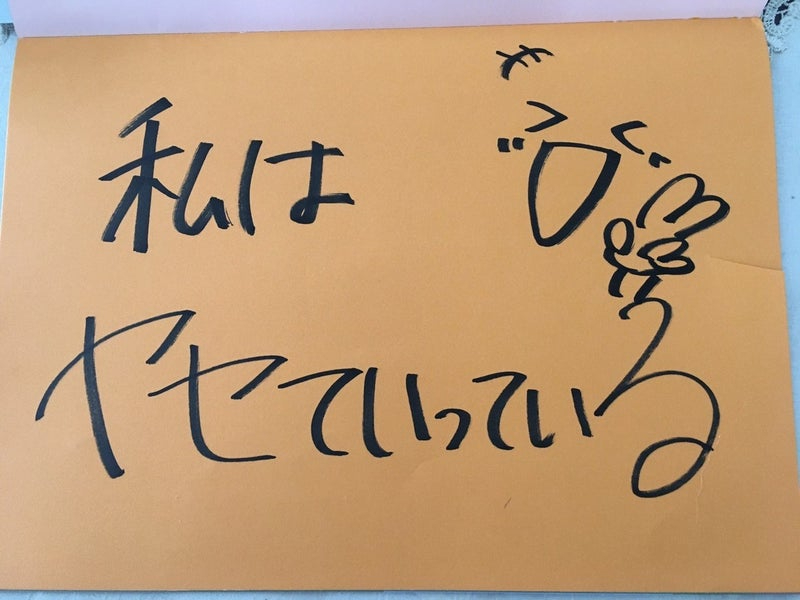 私は
ヤセていっている